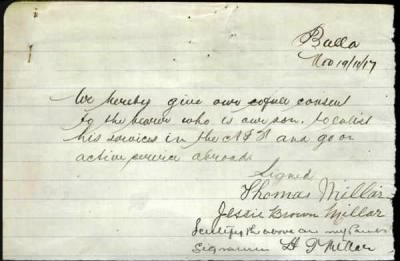 Bulla
Nov 19/11/17
We hereby give our consent
to the bearer who is our son. to enlist
his services in the A.I.F and go on
active service abroad
Signed
Thomas Millar
Jessie Brown Millar
I certify the above are my Parents
Signature H T Millar